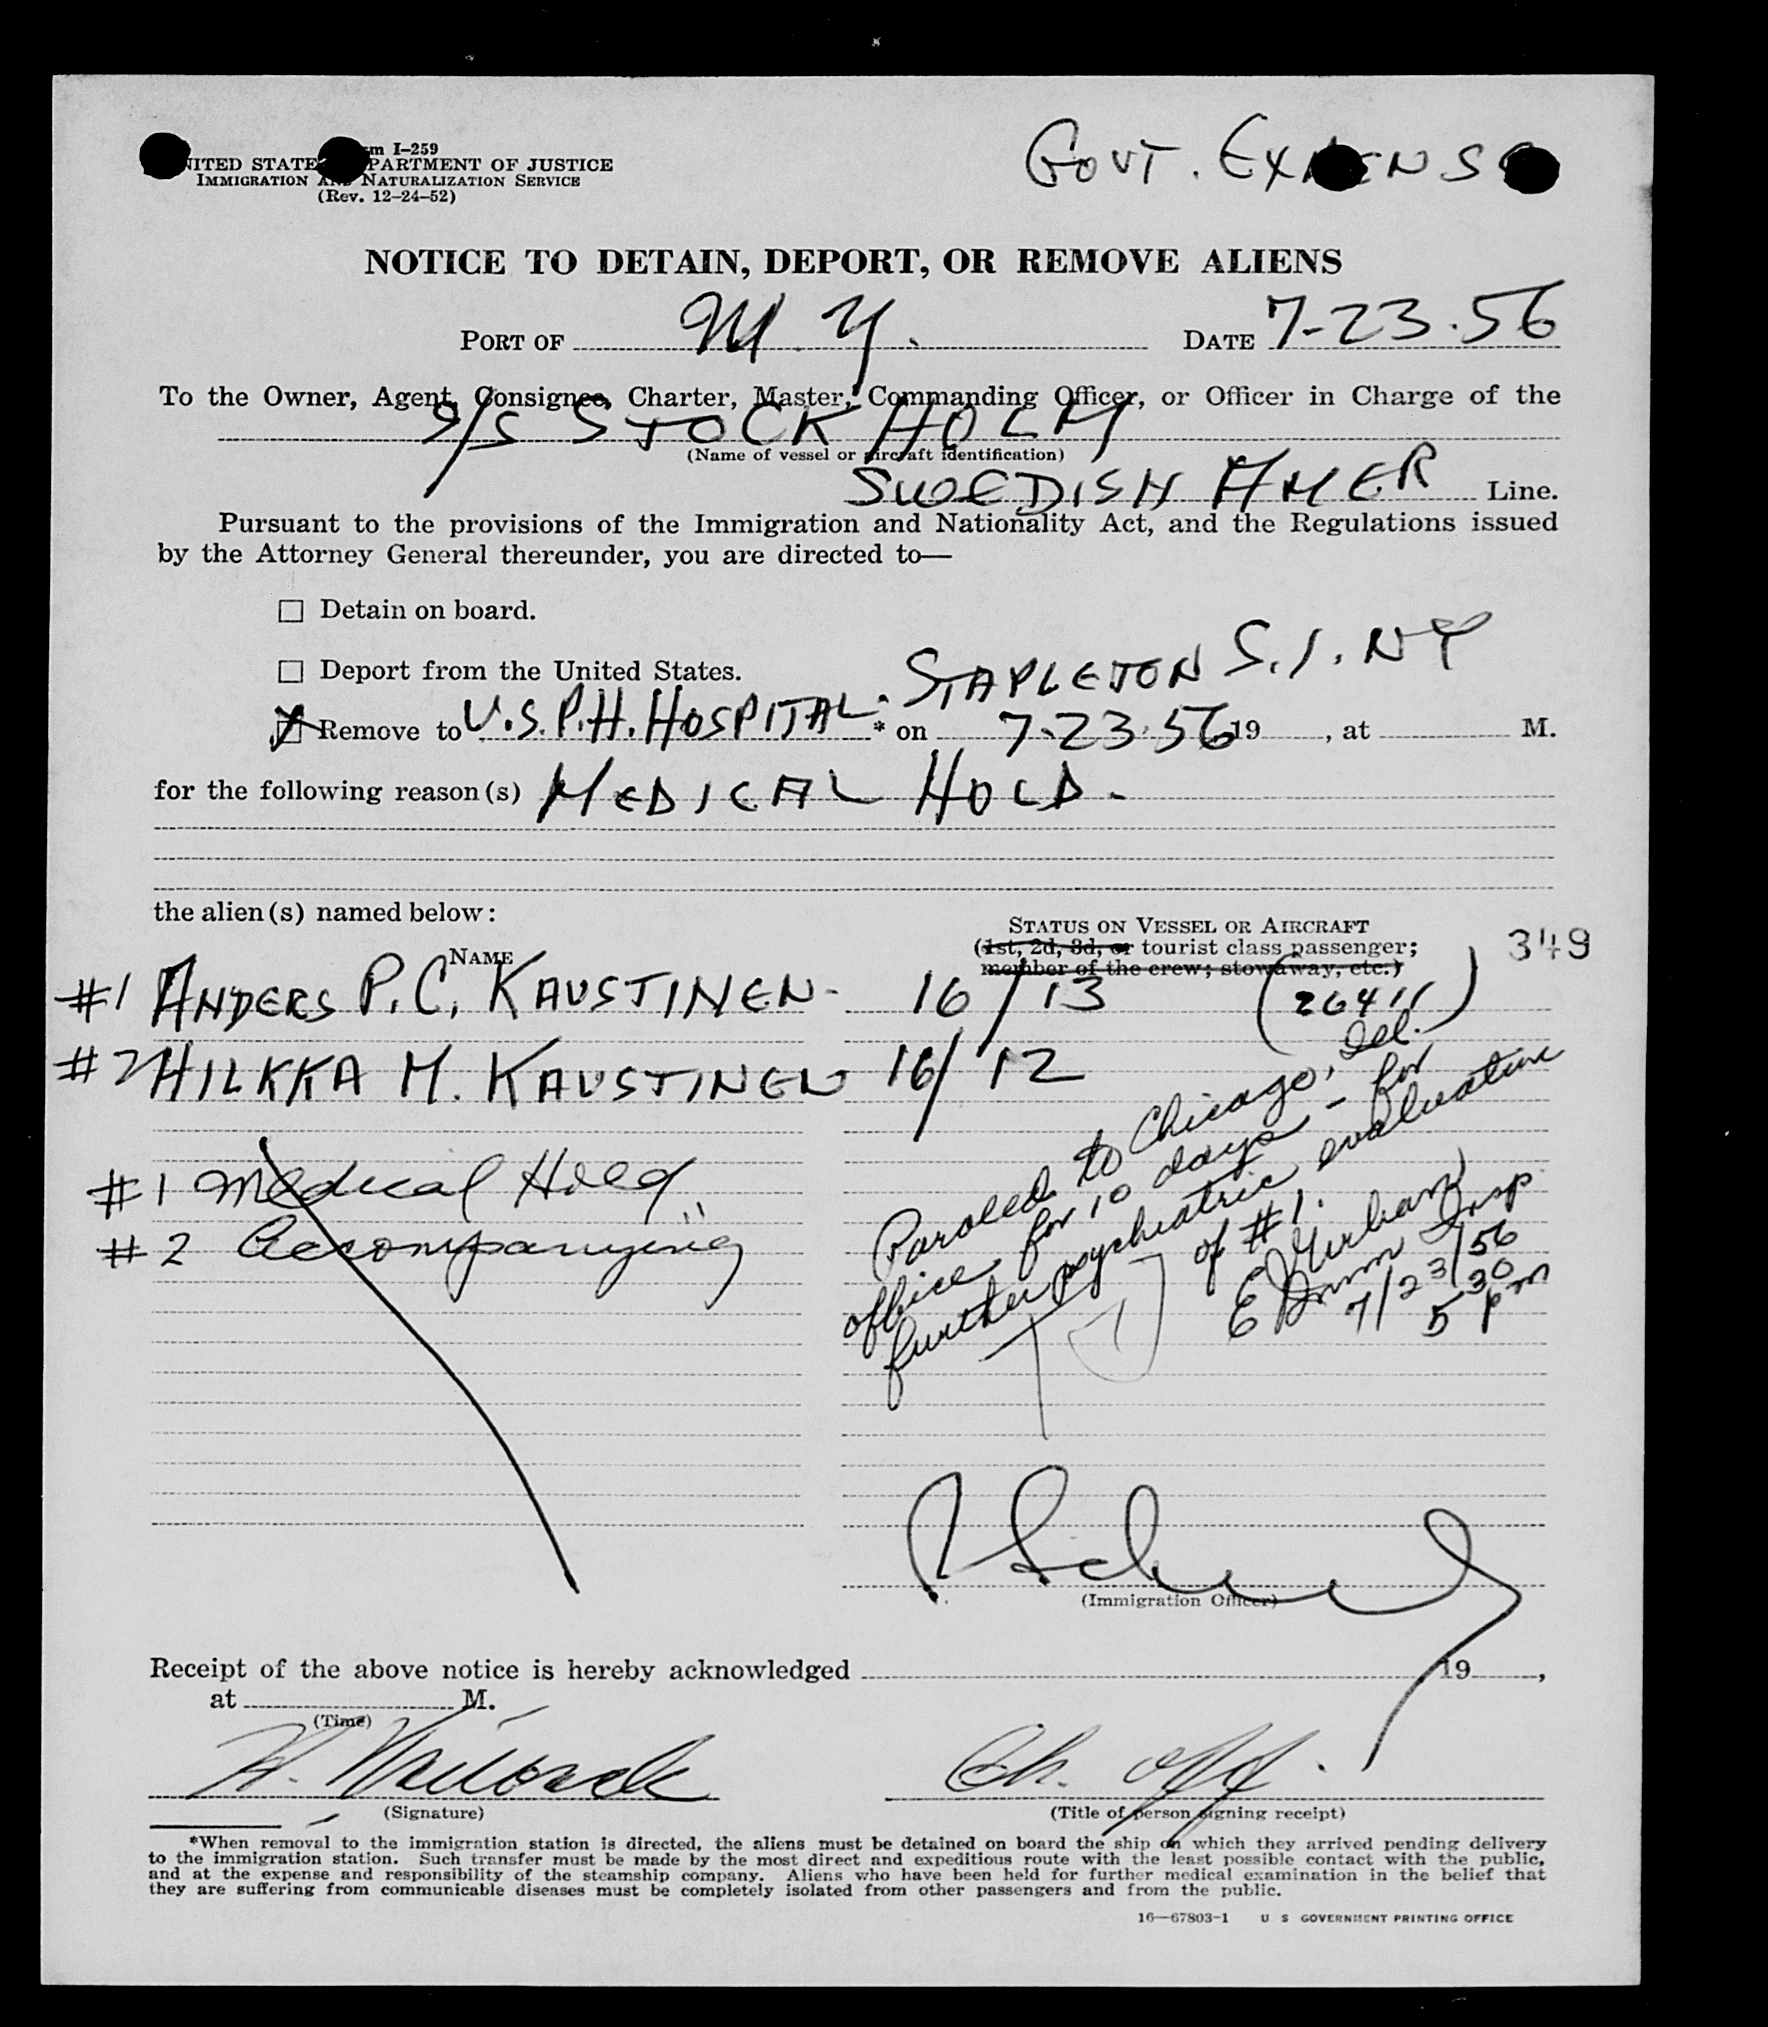 Form I-259
UNITED STATES DEPARTMENT OF JUSTICE
IMMIGRATION AND NATURALIZATION SERVICE
(Rev. 12-24-52)
GOVT. EXPENSE
NOTICE TO DETAIN, DEPORT, OR REMOVE ALIENS
PORT OF N.Y. DATE 7-23-56
To the Owner, Agent, Consignee, Charter, Master, Commanding Officer, or Officer in Charge of the
S/S STOCKHOLM
(Name of vessel or aircraft identification)
SWEDISH AMER Line.
Pursuant to the provisions of the Immigration and Nationality Act, and the Regulations issued
by the Attorney General thereunder, you are directed to—
☐ Detain on board.
☐ Deport from the United States.
STAPLETON S.I. NY
☒ Remove to U.S.P.H. HOSPITAL * on 7-23-56 19 , at M.
for the following reason(s) MEDICAL HOLD.
the alien(s) named below:
NAME
STATUS ON VESSEL OR AIRCRAFT
(1st, 2d, 3d, or tourist class passenger;
member of the crew; stowaway, etc.)
349
#1 ANDERS P.C. KAUSTINEN - 16/13 (26411)
#2 HILKKA M. KAUSTINEN 16/12
#1 Medical Hold
#2 Accompanying
Paroled to Chicago, Ill.
office for 10 days - for
further psychiatric evaluation
of #1.
Imm Insp
7/23/56
5 30 pm
(Immigration Officer)
Receipt of the above notice is hereby acknowledged 19 ,
at M.
(Time)
Ch. Off.
(Signature)
(Title of person signing receipt)
*When removal to the immigration station is directed, the aliens must be detained on board the ship on which they arrived pending delivery
to the immigration station. Such transfer must be made by the most direct and expeditious route with the least possible contact with the public,
and at the expense and responsibility of the steamship company. Aliens who have been held for further medical examination in the belief that
they are suffering from communicable diseases must be completely isolated from other passengers and from the public.
16—67803-1 U S GOVERNMENT PRINTING OFFICE